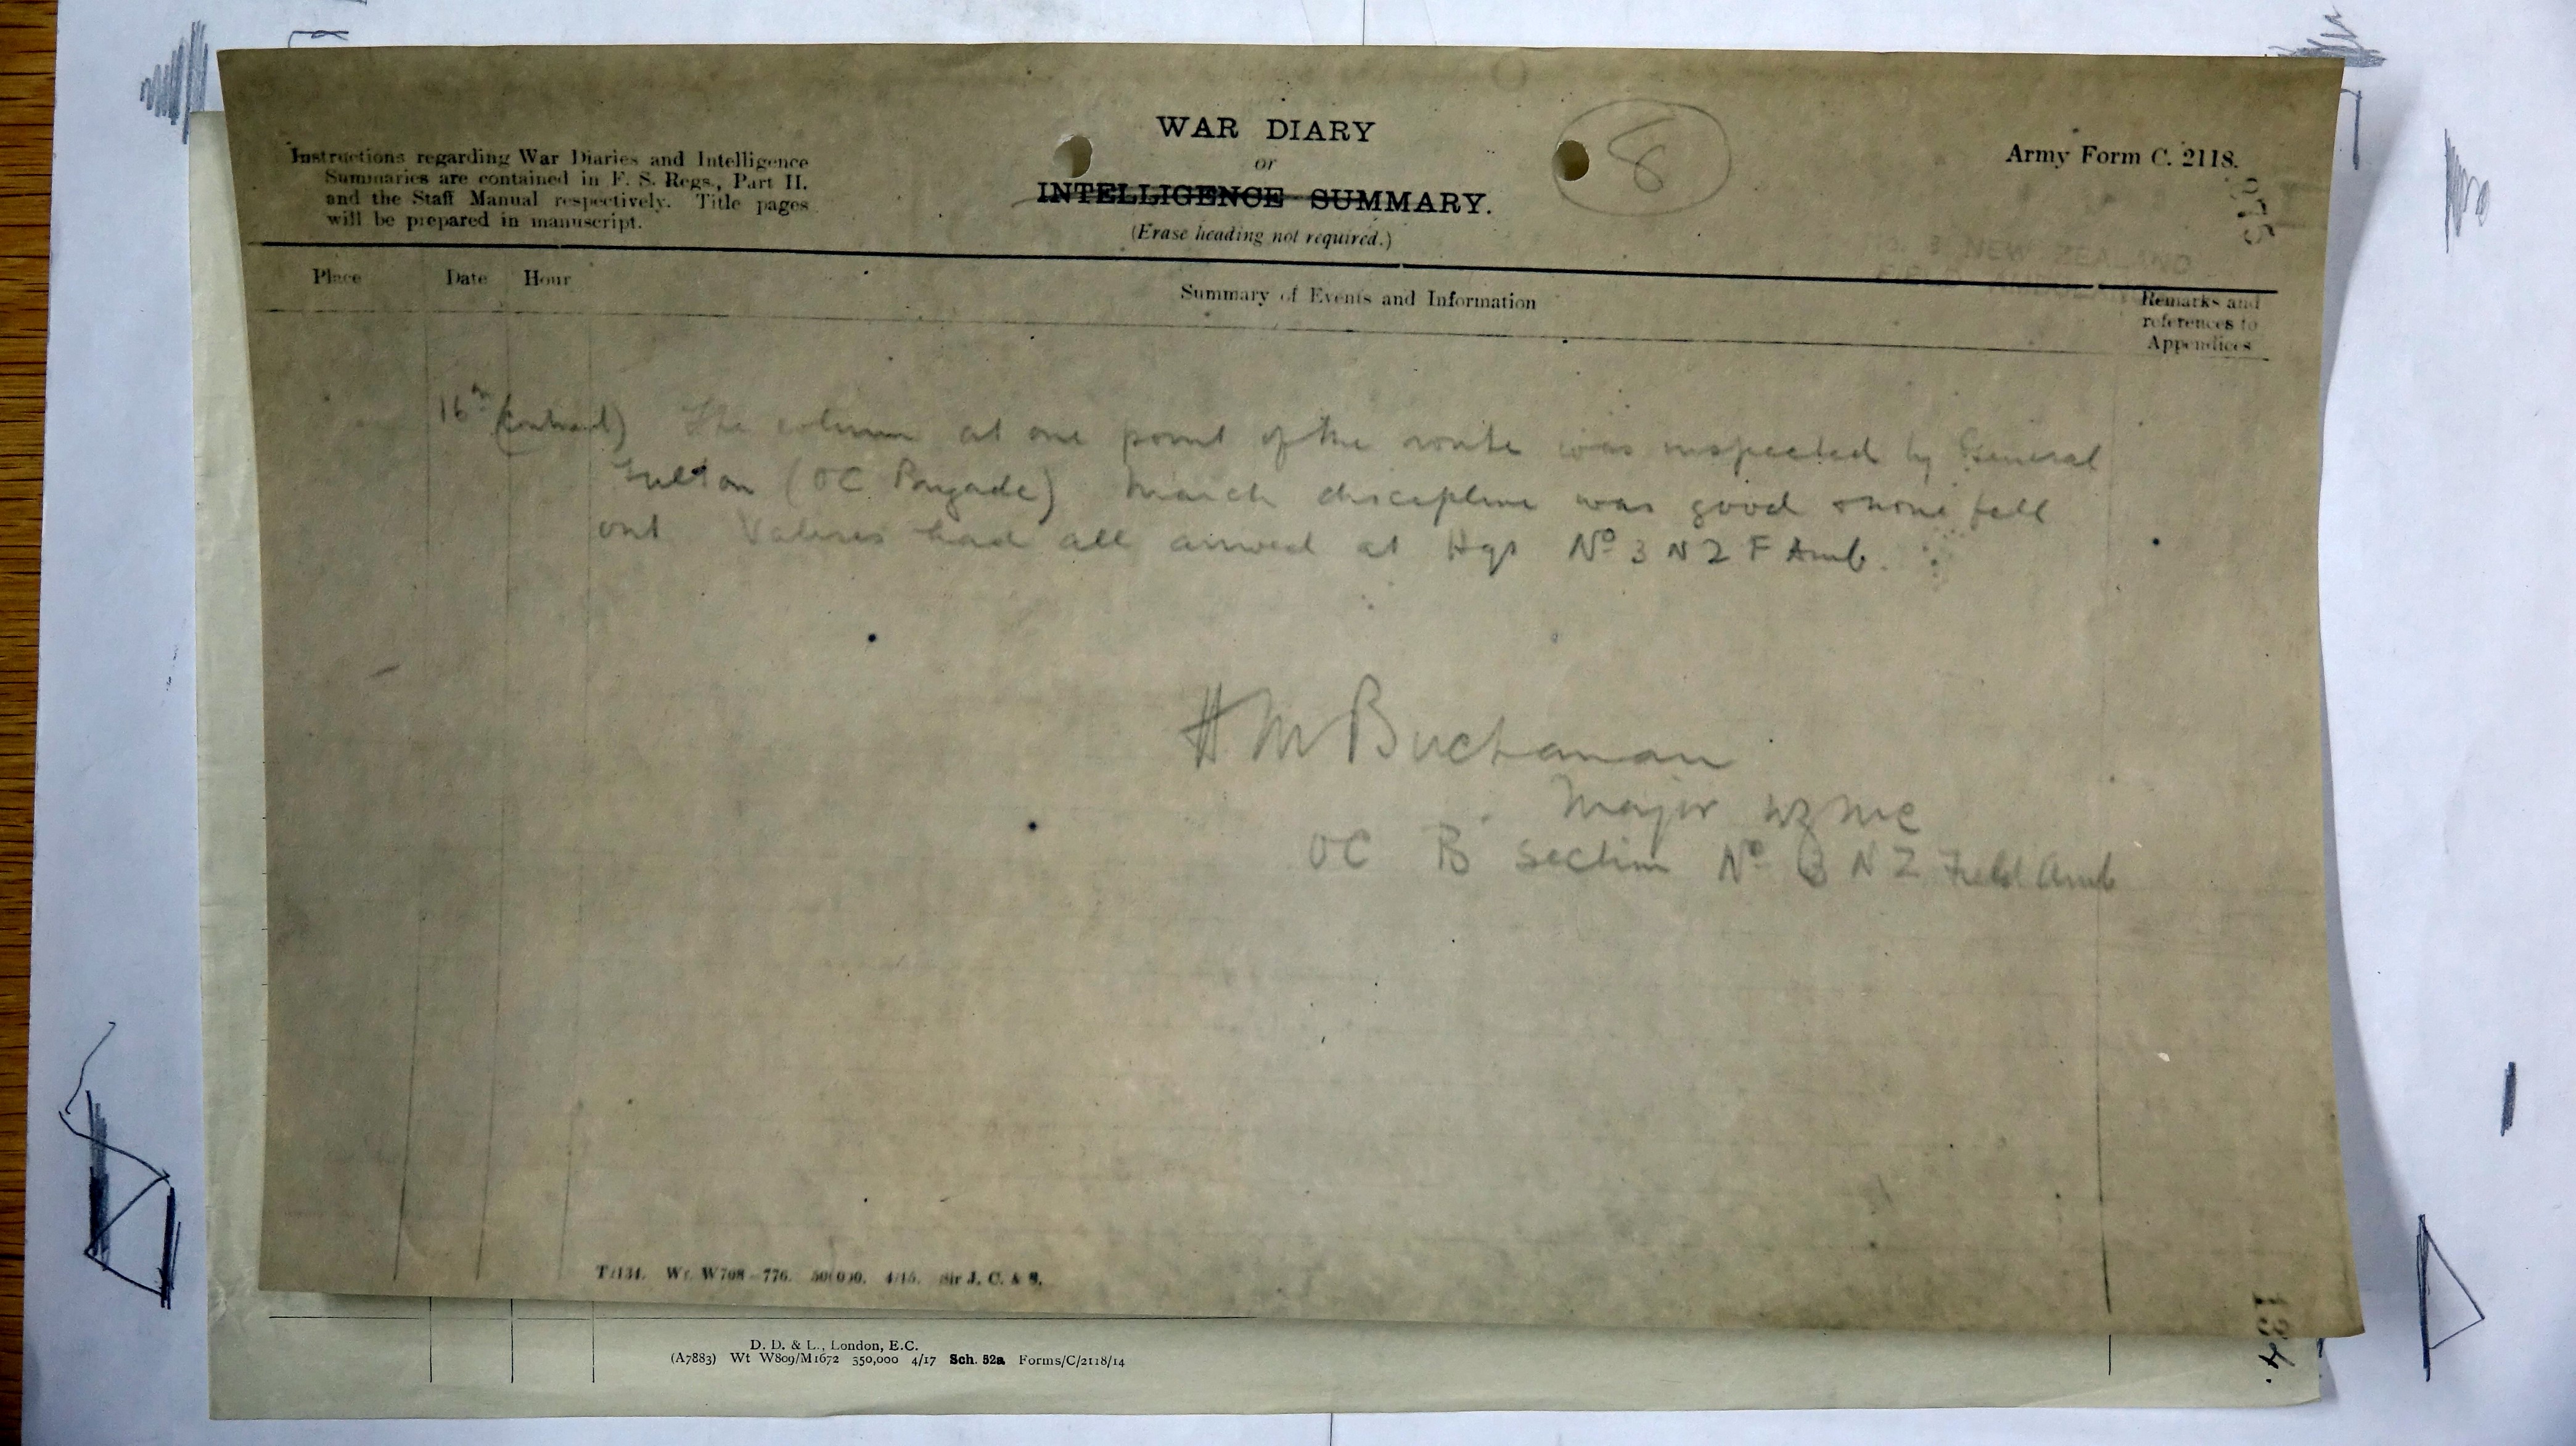 WAR DIARY
or
INTELLIGENCE SUMMARY.
(Erase heading not required.)
8
Army Form C. 2118.
Instructions regarding War Diaries and Intelligence
Summaries are contained in F. S. Regs., Part II.
and the Staff Manual respectively. Title pages
will be prepared in manuscript.
NEW ZEALAND
Place Date Hour Summary of Events and Information Remarks and
references to
Appendices
16th (continued) The column at one point of the route was inspected by General
Fulton (OC Brigade) March discipline was good & none fell
out Valises had all arrived at Hqs No 3 N Z F Amb.
H M Buchanan
Major NZMC
OC B Section No 3 N Z Field Amb
T/134. Wt. W708—776. 500000. 4/15. Sir J. C. & S.
D. D. & L., London, E.C.
(A7883) Wt W809/M1672 350,000 4/17 Sch. 52a Forms/C/2118/14